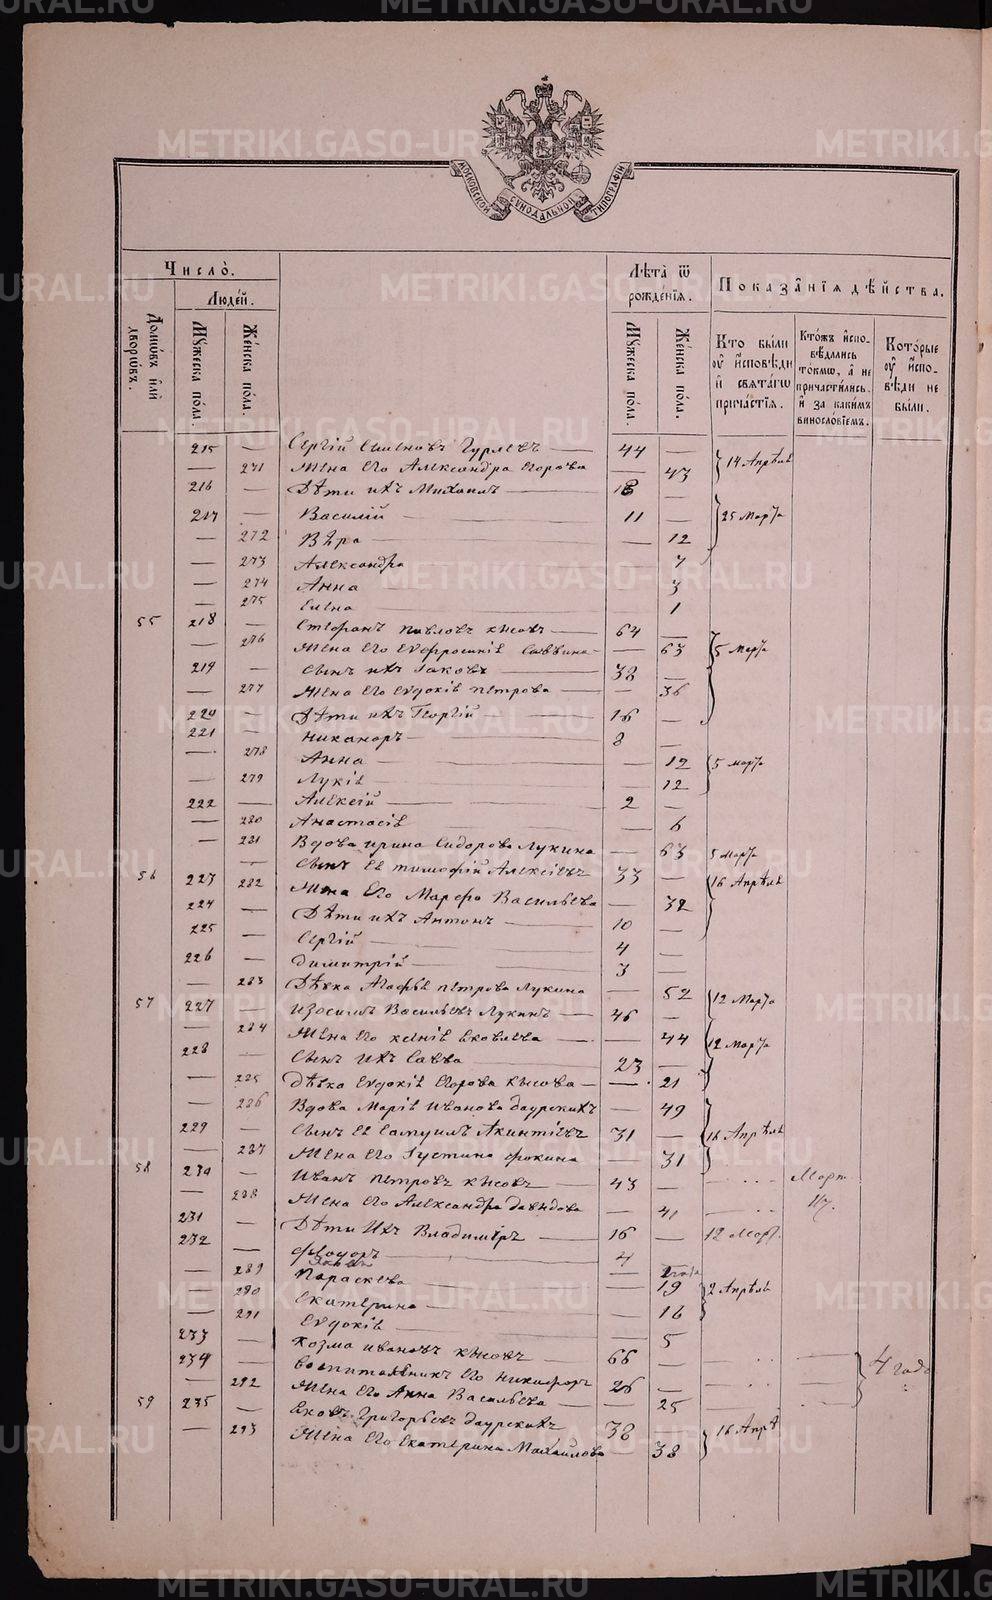 МОСКОВСКОЙ СѴНОДАЛЬНОЙ ТИПОГРАФІИ
Число̀.
Людей.
Домѡвъ илѝ дворѡвъ.
Мꙋжеска по́ла.
Же́нска по́ла.
Лѣ́та ѿ рожде́нїѧ.
Мꙋжеска по́ла.
Же́нска по́ла.
Показа̑нїѧ дѣ́йства.
Кто̀ бы́ли ᲂу҆ и҆сповѣди и҆ свѧта́гѡ прича́стїѧ.
Кто́жъ и҆сповѣ́дались то́кмѡ, а҆ не причасти́лись. и҆ за каки́мъ винослові́емъ.
Кото́рые ᲂу҆ и҆сповѣди не бы́ли.
215 — Сергій Семеновъ Гурлевъ — 44 —
— 271 Жена его Александра Егорова — 43 14 Апрѣля
216 — Дѣти ихъ Михаилъ — 18 —
217 — Василій — 11 — 25 Марта
— 272 Вѣра — — 12
— 273 Александра — 7
— 274 Анна — 3
— 275 Елена — 1
55 218 — Стефанъ Павловъ Кысовъ — 64 —
— 276 Жена его Евфросинія Саввина — 63 5 Марта
219 — Сынъ ихъ Іаковъ — 38 —
— 277 Жена его Евдокія Петрова — — 36
220 — Дѣти ихъ Георгій — 16 —
221 — Никаноръ — 8 —
— 278 Анна — — 12 5 марта
— 279 Лукія — — 12
222 — Алексій — 2 —
— 280 Анастасія — 6
— 281 Вдова Ирина Сидорова Лукина — 63 5 Марта
56 227 — Сынъ ея Тимофій Алексіевъ 33 — 16 Апрѣля
282 Жена его Марфа Васильева — 32
224 — Дѣти ихъ Антонъ — 10 —
225 — Сергій — 4 —
226 — Димитрій — 3 —
— 283 Дѣвка Агафья Петрова Лукина — 52 12 Марта
57 227 — Изосимъ Васильевъ Лукинъ — 46 —
— 284 Жена его Ксенія Яковлева — — 44 12 Марта
228 — Сынъ ихъ Савва 23 —
— 285 Дѣвка Евдокія Егорова Кысова — — 21
— 286 Вдова Марія Иванова Даурскихъ — 49
229 — Сынъ ея Самуилъ Акинтіевъ 31 — 16 Апрѣля
— 287 Жена его Іустина Фокина — 31
58 230 — Иванъ Петровъ Кысовъ — 43 — Март.
— 288 Жена его Александра Давидова — 41
231 — Дѣти ихъ Владиміръ — 16 — 12 Март.
232 — Ѳеодоръ — 4 —
— 289 Параскева — — 19 2 Апрѣля
— 290 Екатерина — — 16
— 291 Евдокія — — 5
233 — Козма Ивановъ Кысовъ — 66 —
234 — Воспитанникъ его Никифоръ 26 — 4 года
— 292 Жена его Анна Васильева — — 25
59 235 — Яковъ Григорьевъ Даурскихъ 38 — 16 Апрѣ
— 293 Жена его Екатерина Михайлова — 38
METRIKI.GASO-URAL.RU